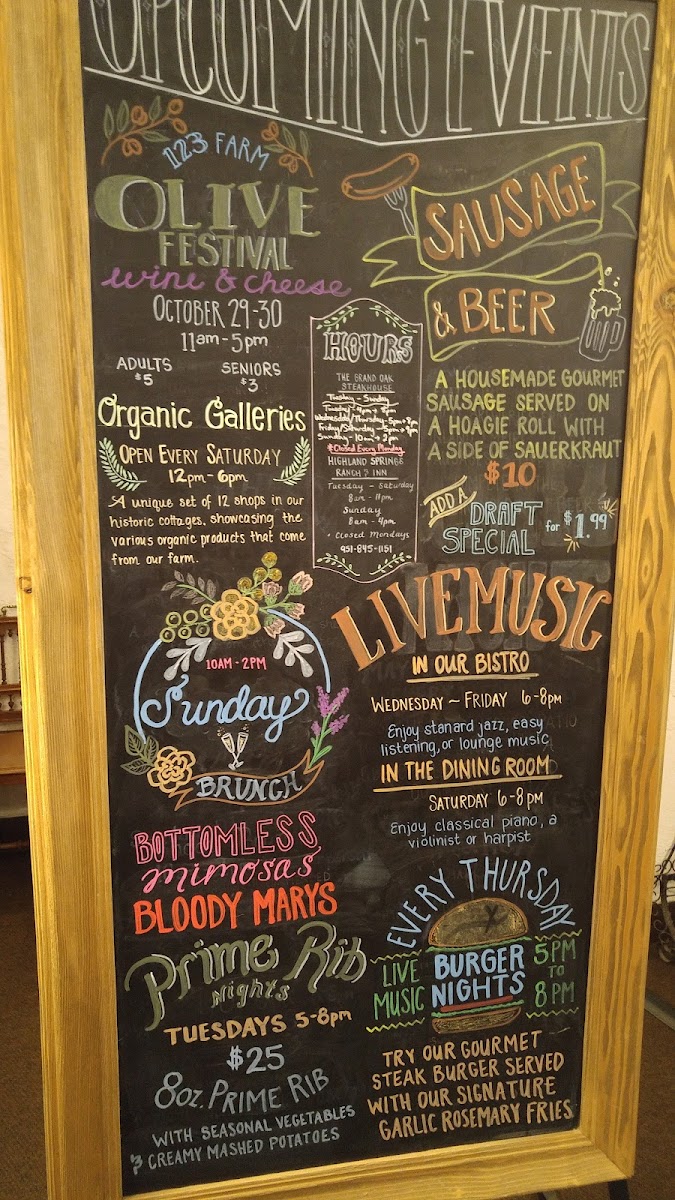 UPCOMING EVENTS
123 FARM
OLIVE
FESTIVAL
wine & cheese
OCTOBER 29-30
11am-5pm
ADULTS
$5
SENIORS
$3
Organic Galleries
OPEN EVERY SATURDAY
12pm-6pm
A unique set of 12 shops in our
historic cottages, showcasing the
various organic products that come
from our farm.
SAUSAGE
& BEER
A HOUSEMADE GOURMET
SAUSAGE SERVED ON
A HOAGIE ROLL WITH
A SIDE OF SAUERKRAUT
$10
ADD A
DRAFT
SPECIAL
for $1.99
HOURS
THE GRAND OAK
STEAKHOUSE
Tuesday - Sunday
Sunday - 10am - 2pm
*Closed Every Monday
HIGHLAND SPRINGS
RANCH & INN
Tuesday - Saturday
8am - 11pm
Sunday
8am - 4pm
* Closed Mondays
951-845-1151
10AM-2PM
Sunday
BRUNCH
BOTTOMLESS
mimosas
BLOODY MARYS
Prime Rib
Nights
TUESDAYS 5-8pm
$25
8oz. PRIME RIB
WITH SEASONAL VEGETABLES
& CREAMY MASHED POTATOES
LIVE MUSIC
IN OUR BISTRO
WEDNESDAY ~ FRIDAY 6-8PM
Enjoy stanard jazz, easy
listening, or lounge music
IN THE DINING ROOM
SATURDAY 6-8PM
Enjoy classical piano, a
violinist or harpist
EVERY THURSDAY
LIVE
MUSIC
BURGER
NIGHTS
5PM
TO
8PM
TRY OUR GOURMET
STEAK BURGER SERVED
WITH OUR SIGNATURE
GARLIC ROSEMARY FRIES